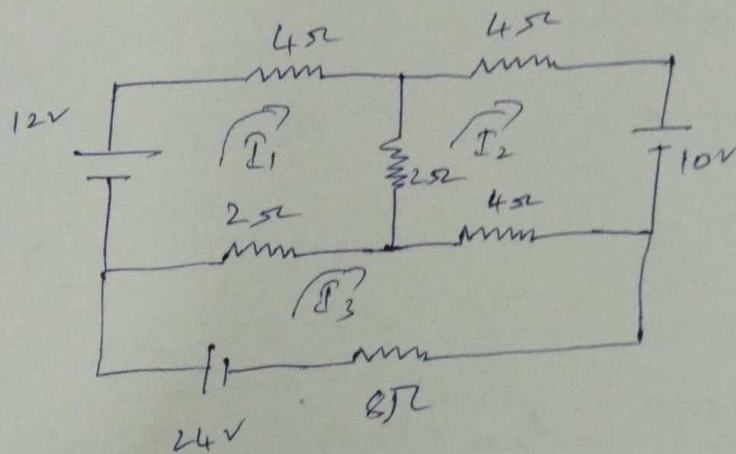 4Ω
4Ω
12V
I1
I2
2Ω
10V
2Ω
4Ω
I3
24V
8Ω